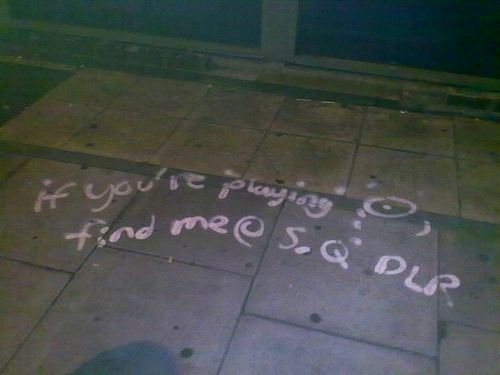 if you're playing
find me @ S.Q DLR